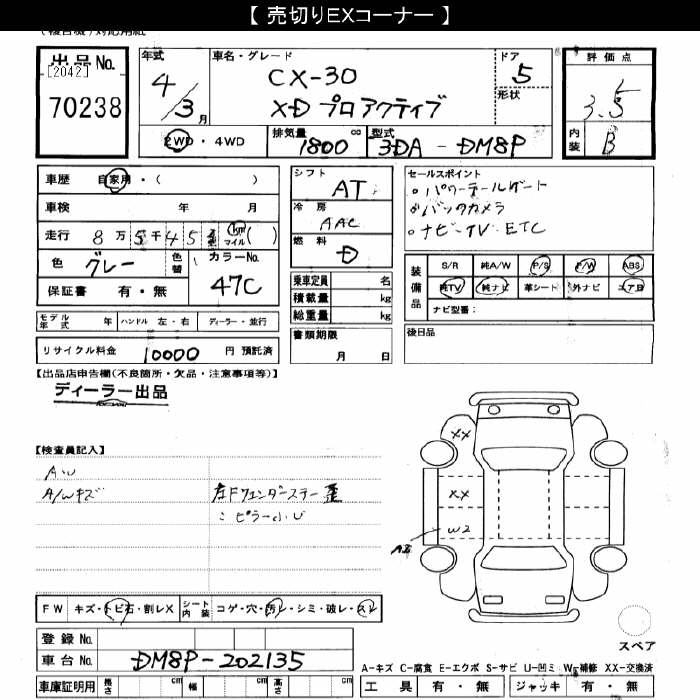 【 売切りEXコーナー 】
出品No. [2042] 70238
年式 4/3月
車名・グレード CX-30 XD プロアクティブ
ドア 5
形状
2WD・4WD
排気量 1800 cc
型式 3DA - DM8P
評価点 3.5
内装 B
車歴 自家用・( )
車検 年 月
走行 8万5千45 km マイル ( )
色 グレー 色替
カラーNo. 47C
保証書 有・無
シフト AT
冷房 AAC
燃料 D
乗車定員 名
積載量 kg
総重量 kg
セールスポイント
・パワーテールゲート
・バックカメラ
・ナビ-TV ETC
装備品 S/R 純A/W P/S P/W ABS
純TV 純ナビ 革シート 外ナビ エアB
ナビ型番:
モデル年式 年 ハンドル 左・右 ディーラー・並行
書類期限 月 日
後日品
リサイクル料金 10000 円 預託済
【出品店申告欄(不良箇所・欠品・注意事項等)】
ディーラー出品
【検査員記入】
A・U
A/Wキズ
左Fフェンダーステー歪
:ピラー小U
XX
XX
W2
FW キズ・トビ石・割レX シート内装 コゲ・穴・汚レ・シミ・破レ・スレ
登録No.
車台No. DM8P-202135
スペア
A-キズ C-腐食 E-エクボ S-サビ U-凹ミ W-補修 XX-交換済
車庫証明用 長さ cm 幅 cm 高さ cm
工具 有・無 ジャッキ 有・無